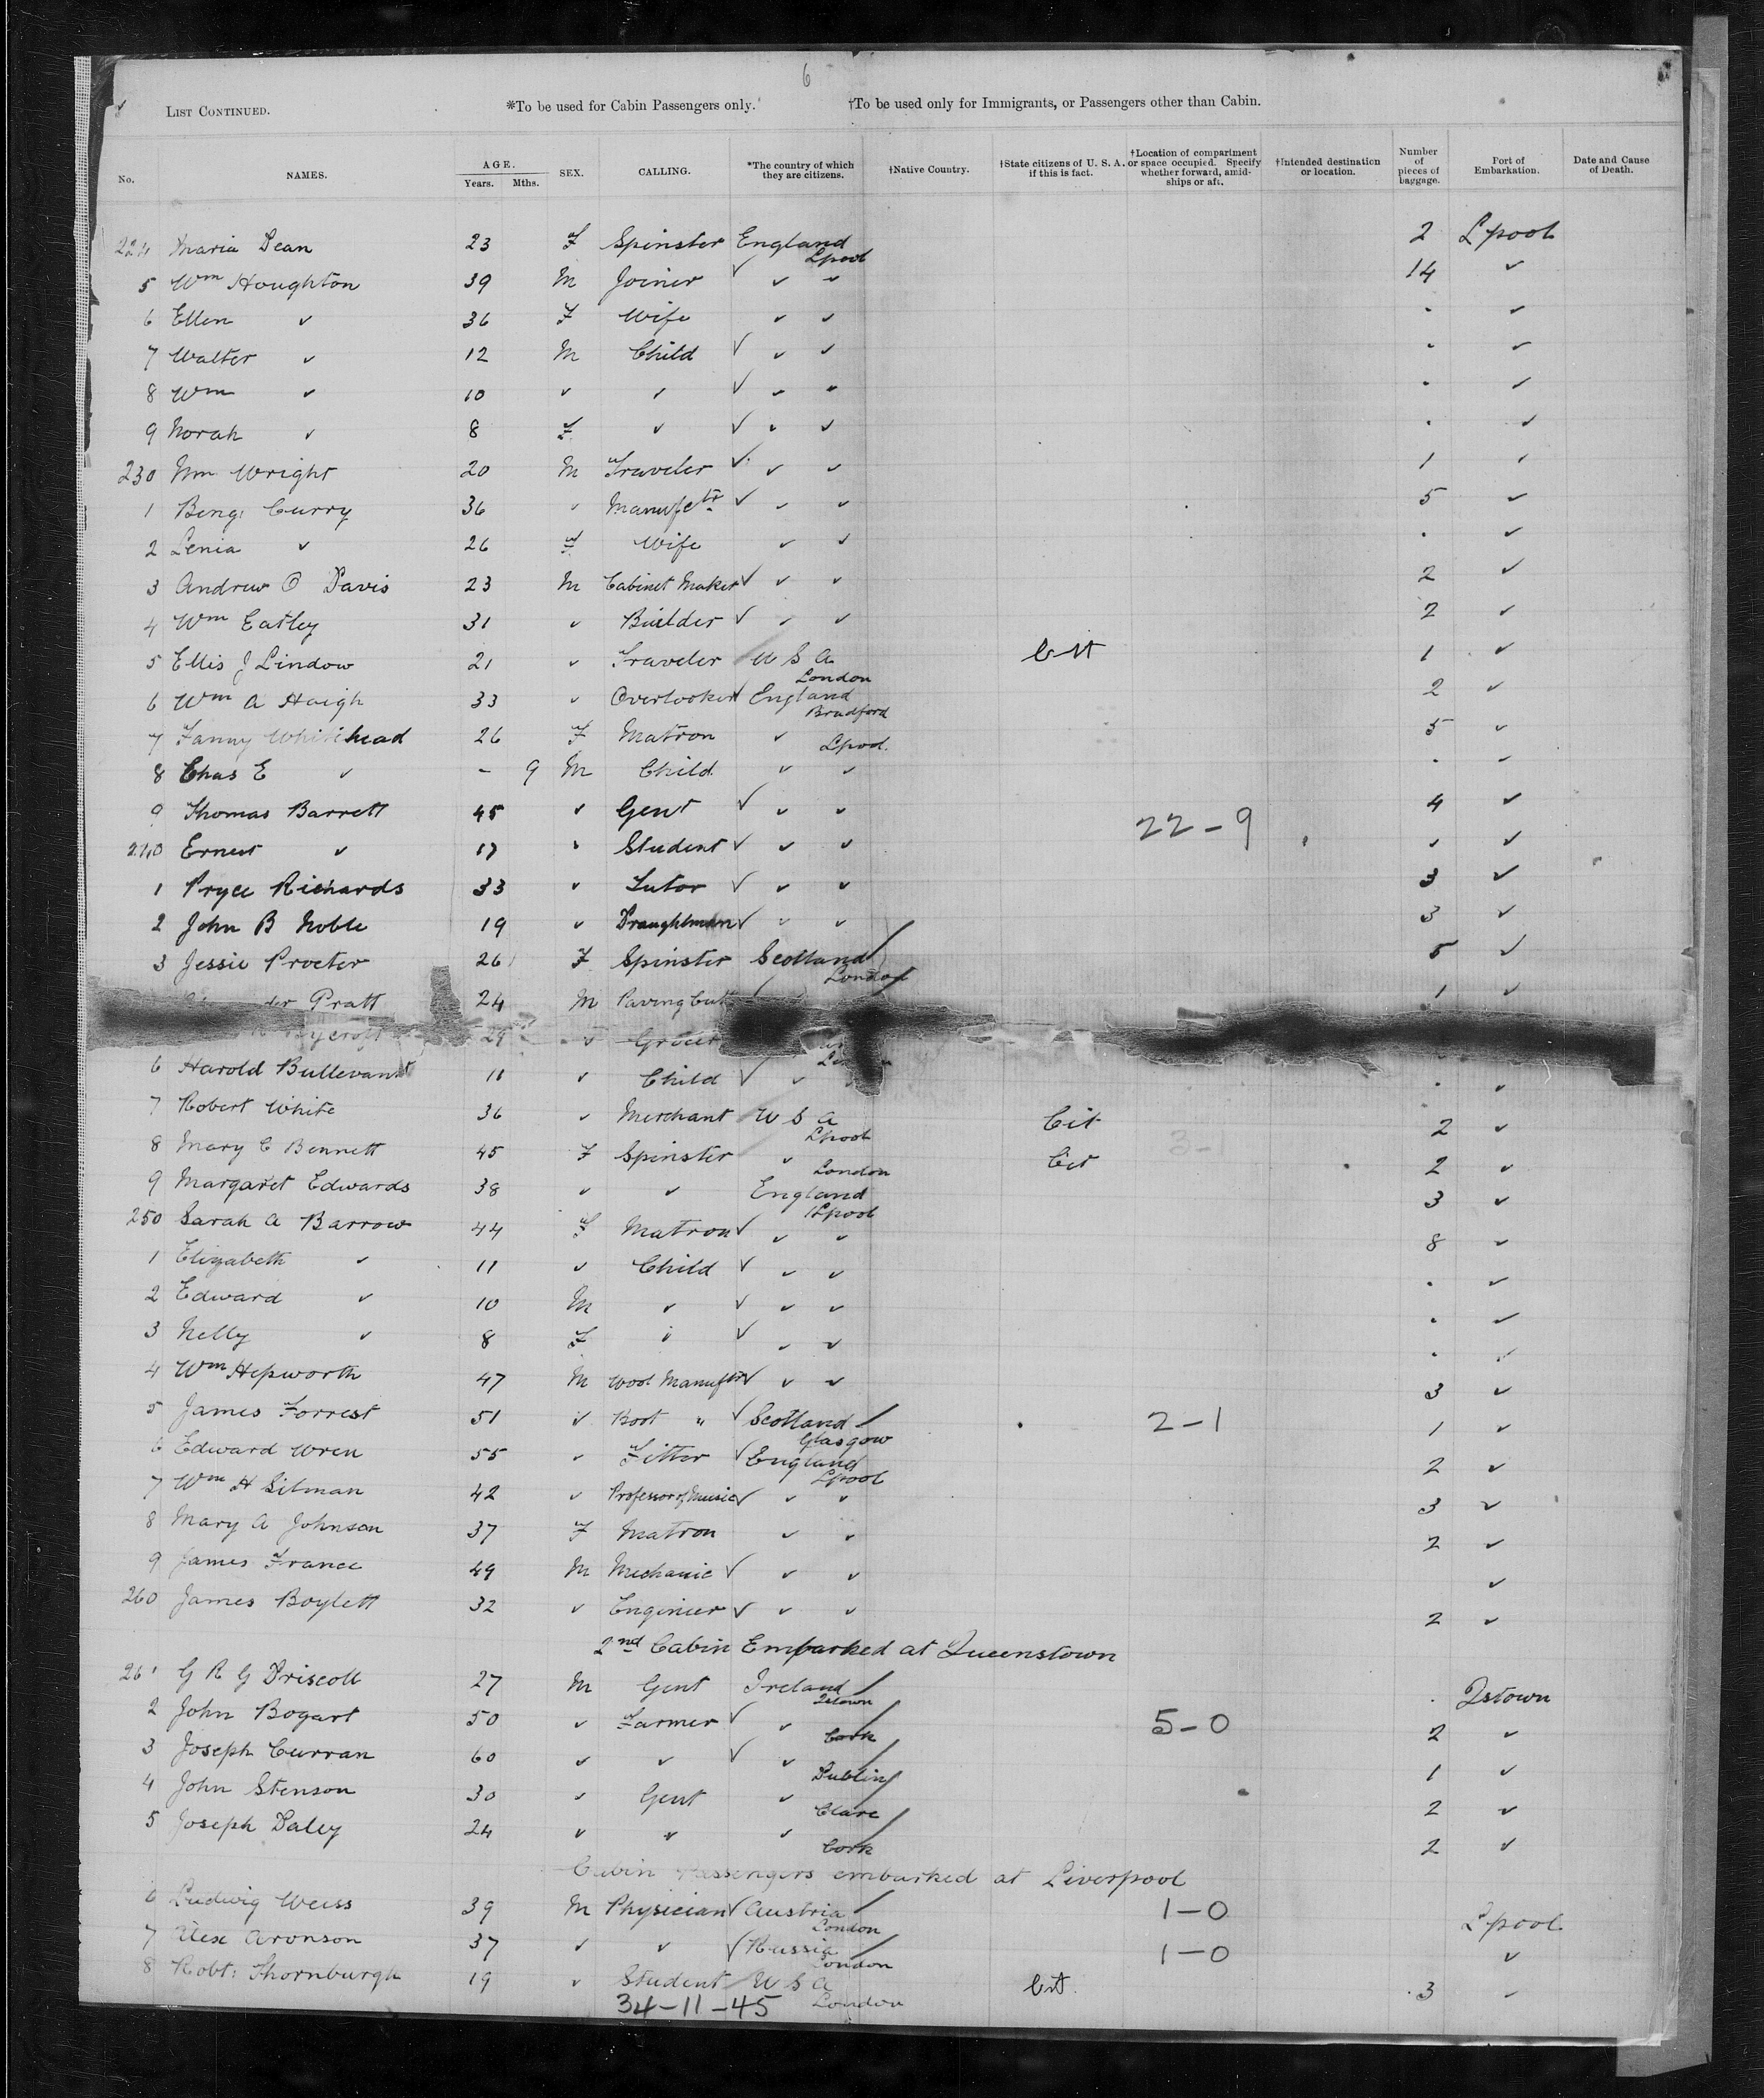 6
LIST CONTINUED. *To be used for Cabin Passengers only. †To be used only for Immigrants, or Passengers other than Cabin.
No. NAMES. AGE. Years. Mths. SEX. CALLING. *The country of which they are citizens. †Native Country. †State citizens of U. S. A. if this is fact. †Location of compartment or space occupied. Specify whether forward, amidships or aft. †Intended destination or location. Number of pieces of baggage. Port of Embarkation. Date and Cause of Death.
224 Maria Dean 23 F Spinster England Lpool 2 Lpool
5 Wm Houghton 39 M Joiner ✓ ✓ ✓ 14 ✓
6 Ellen ✓ 36 F Wife ✓ ✓ . ✓
7 Walter ✓ 12 M Child ✓ ✓ ✓ . ✓
8 Wm ✓ 10 ✓ ✓ ✓ ✓ ✓ . ✓
9 Norah ✓ 8 F ✓ ✓ ✓ ✓ . ✓
230 Wm Wright 20 M Traveler ✓ ✓ ✓ 1 ✓
1 Benj: Curry 36 ✓ Manufctr ✓ ✓ ✓ 5 ✓
2 Lenia ✓ 26 F Wife ✓ ✓ . ✓
3 Andrew O Davis 23 M Cabinet Maker ✓ ✓ ✓ 2 ✓
4 Wm Eatley 31 ✓ Builder ✓ ✓ ✓ 2 ✓
5 Ellis J Lindow 21 ✓ Traveler U S A London Cit 1 ✓
6 Wm A Haigh 33 ✓ Overlooker ✓ England Bradford 2 ✓
7 Fanny Whitehead 26 F Matron ✓ Lpool. 5 ✓
8 Chas E ✓ - 9 M Child ✓ ✓ . ✓
9 Thomas Barrett 45 ✓ Gent ✓ ✓ ✓ 22-9 4 ✓
240 Ernest ✓ 17 ✓ Student ✓ ✓ ✓ ✓ ✓
1 Pryce Richards 33 ✓ Tutor ✓ ✓ ✓ 3 ✓
2 John B Noble 19 ✓ Draughtman ✓ ✓ ✓ 3 ✓
3 Jessie Procter 26 F Spinster Scotland London 5 ✓
Pratt 24 M Paving 1 ✓
29 ✓ Grocer
6 Harold Bullevant 11 ✓ Child ✓ ✓ . ✓
7 Robert White 36 ✓ Merchant U S A Lpool Cit 2 ✓
8 Mary C Bennett 45 F Spinster ✓ London Cit 3-1 2 ✓
9 Margaret Edwards 38 ✓ ✓ England Lpool 3 ✓
250 Sarah A Barrow 44 F Matron ✓ ✓ ✓ 8 ✓
1 Elizabeth ✓ 11 ✓ Child ✓ ✓ ✓ . ✓
2 Edward ✓ 10 M ✓ ✓ ✓ ✓ . ✓
3 Nelly ✓ 8 F ✓ ✓ ✓ ✓ . ✓
4 Wm Hepworth 47 M Wool Manuftr ✓ ✓ ✓ 3 ✓
5 James Forrest 51 ✓ Boot " ✓ Scotland Glasgow 2-1 1 ✓
6 Edward Wren 55 ✓ Fitter ✓ England Lpool 2 ✓
7 Wm H Silman 42 ✓ Professor of Music ✓ ✓ ✓ 3 ✓
8 Mary A Johnson 37 F Matron ✓ ✓ 2 ✓
9 James France 49 M Mechanic ✓ ✓ ✓ ✓
260 James Boylett 32 ✓ Engineer ✓ ✓ ✓ 2 ✓
2nd Cabin Embarked at Queenstown
261 G R G Driscoll 27 M Gent Ireland Qstown . Qstown
2 John Bogart 50 ✓ Farmer ✓ ✓ Cork 5-0 2 ✓
3 Joseph Curran 60 ✓ ✓ ✓ ✓ Dublin 1 ✓
4 John Stenson 30 ✓ Gent ✓ Clare 2 ✓
5 Joseph Daley 24 ✓ ✓ ✓ Cork 2 ✓
Cabin Passengers embarked at Liverpool
6 Ludwig Weiss 39 M Physician ✓ Austria London 1-0 Lpool
7 Alex Aronson 37 ✓ ✓ ✓ Russia London 1-0 ✓
8 Robt: Thornburgh 19 ✓ Student U S A London Cit. 3 ✓
34-11-45